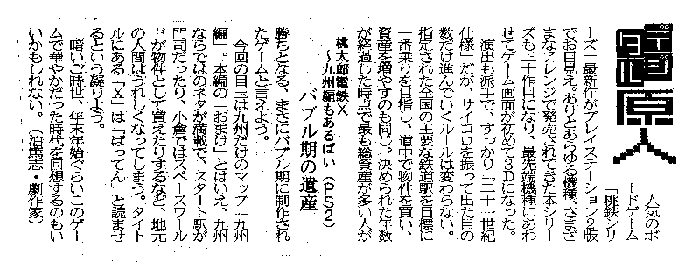 デジタル原人
人気のボ
ードゲーム
「桃鉄シリ
ーズ」最新作がプレイステーション２版
でお目見え。ありとあらゆる機種、さまざ
まなアレンジで発売されてきた本シリー
ズも三十作目になり、最先端機種にあわ
せてゲーム画面が初めて３Ｄになった。
演出も派手で、すっかり「二十一世紀
仕様」だが、サイコロを振って出た目の
数だけ進んでいくルールは変わらない。
指定された全国の主要な鉄道駅を目標に
一番乗りを目指し、道中で物件を買い、
資産を増やすのも同じ。決められた年数
が経過した時点で最も総資産が多い人が
桃太郎電鉄Ｘ
～九州編もあるばい（ＰＳ２）
バブル期の遺産
勝ちとなる、まさにバブル期に制作され
たゲームと言えよう。
今回の目玉は九州だけのマップ「九州
編」。本編の「おまけ」とはいえ、九州
ならではのネタが満載で、スタート駅が
門司だったり、小倉ではスペースワール
ドが物件として買えたりするなど、地元
の人間はうれしくなってしまう。タイト
ルにある「Ｘ」は「ばってん」と読ませ
るという凝りよう。
暗いご時世、年末年始ぐらいこのゲー
ムで華やかだった時代を回想するのもい
いかもしれない。（泊篤志・劇作家）